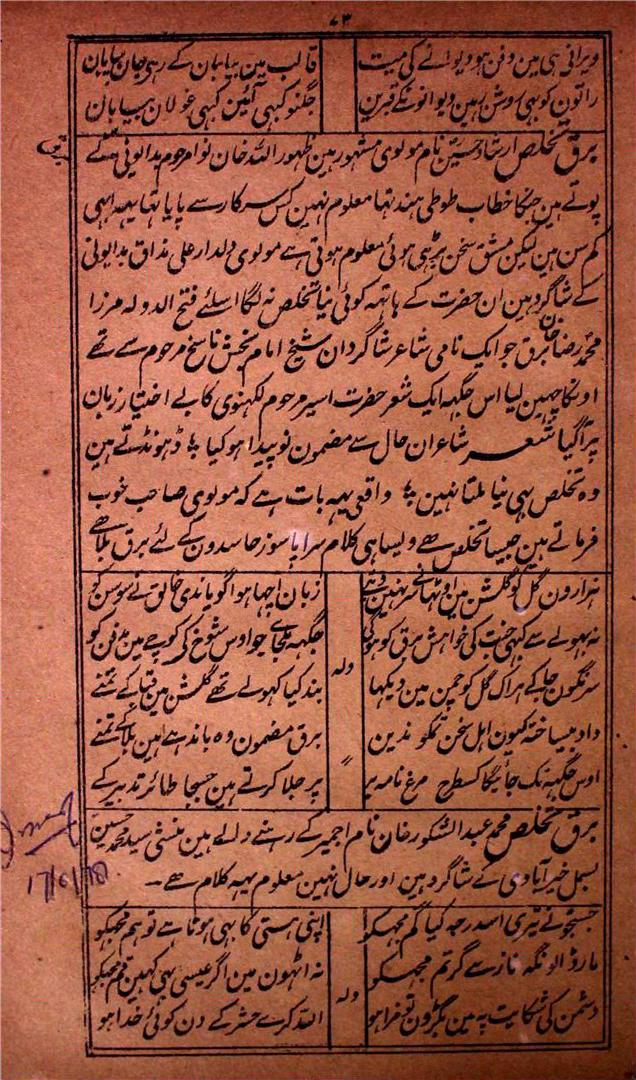 ۷۳
ویرانی ہی مین دفن ہو دیوانے کی میت قالب مین بیابان کے رہی جان بیابان
راتون کو بہی روشن ہین دیوانونکے قبرین جگنو کہی آئین کہی غولان بیابان
برق
برق تخلص ارشاد حسین نام مولوی مشہور ہین ظہور اللہ خان نوا مرحوم بدایونی کے
پوتے ہین جنکا خطاب طوطی ہند تہا معلوم نہین کس سرکار سے پایا تہا یہہ ابہی
کم سن ہین لیکن مشق سخن بڑہی ہوئی معلوم ہوتی ہے مولوی دلدار علی مذاق بدایونی
کے شاگرد ہین ان حضرت کے ہاتہہ کوئی نیا تخلص نہ لگا اسلئے فتح الدولہ مرزا
محمد رضا خان برق جو ایک نامی شاعر شاگردان شیخ امام بخش ناسخ مرحوم سے تھے
اونکا چہین لیا اس جگہہ ایک شعر حضرت اسیر مرحوم لکہنوی کا بے اختیار زبان
پر آگیا شعر شاعران حال سے مضمون نو پیدا ہو کیا ٭ ڈہونڈتے ہین
وہ تخلص بہی نیا ملتا نہین ٭ واقعی یہہ بات ہے کہ مولوی صاحب خوب
فرماتے ہین جیسا تخلص ہے ویسا ہی کلام سراپا سوز حاسدون کے لئے برق بلا ہے
ہزارون گل کو گلشن مین زبان اچہا ہوا گویا ندی خالق نے سوسن کو
نہ بہولے سے کہی جنت کی خواہش برق کو ہوگی جگہہ ملجاے جو اوس شوخ کی کوچے مین مدفن کو
سرنگون جا کے ہر اک گل کو چمن مین دیکہا ولہ بند کیا کہولے تھے گلشن مین قبا کے تمنے
داد بیساختہ کیون اہل سخن تمکو ندین برق مضمون وہ باندہے ہین بلا کے تمنے
اوس جگہہ تک جائیگا کسطرح مرغ نامہ بر 〃 پر جلا کرتے ہین جسجا طائر تدبیر کے
برق تخلص محمد عبد الشکور خان نام اجمیر کے رہنے والے ہین منشی سید محمد حسین
بسمل خیرآبادی کے شاگرد ہین اور حال نہین معلوم یہہ کلام ہے ۔
جستجو نے تیری اسدرجہ کیا گم مجہکو اپنی ہستی کا بہی ہوتا ہے توہم مجہکو
مار ڈالو نگہہ ناز سے گر تم مجہکو نہ اٹہون مین اگر عیسی بہی کہین قم مجہکو
دشمن کی شکایت پہ مین بگڑون تو خفا ہو ولہ اللہ کرے حشر کے دن کوئی خدا ہو